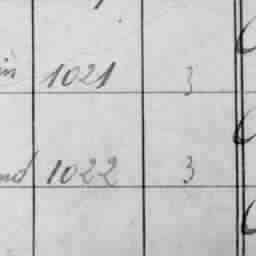 in 1021 3
nd 1022 3